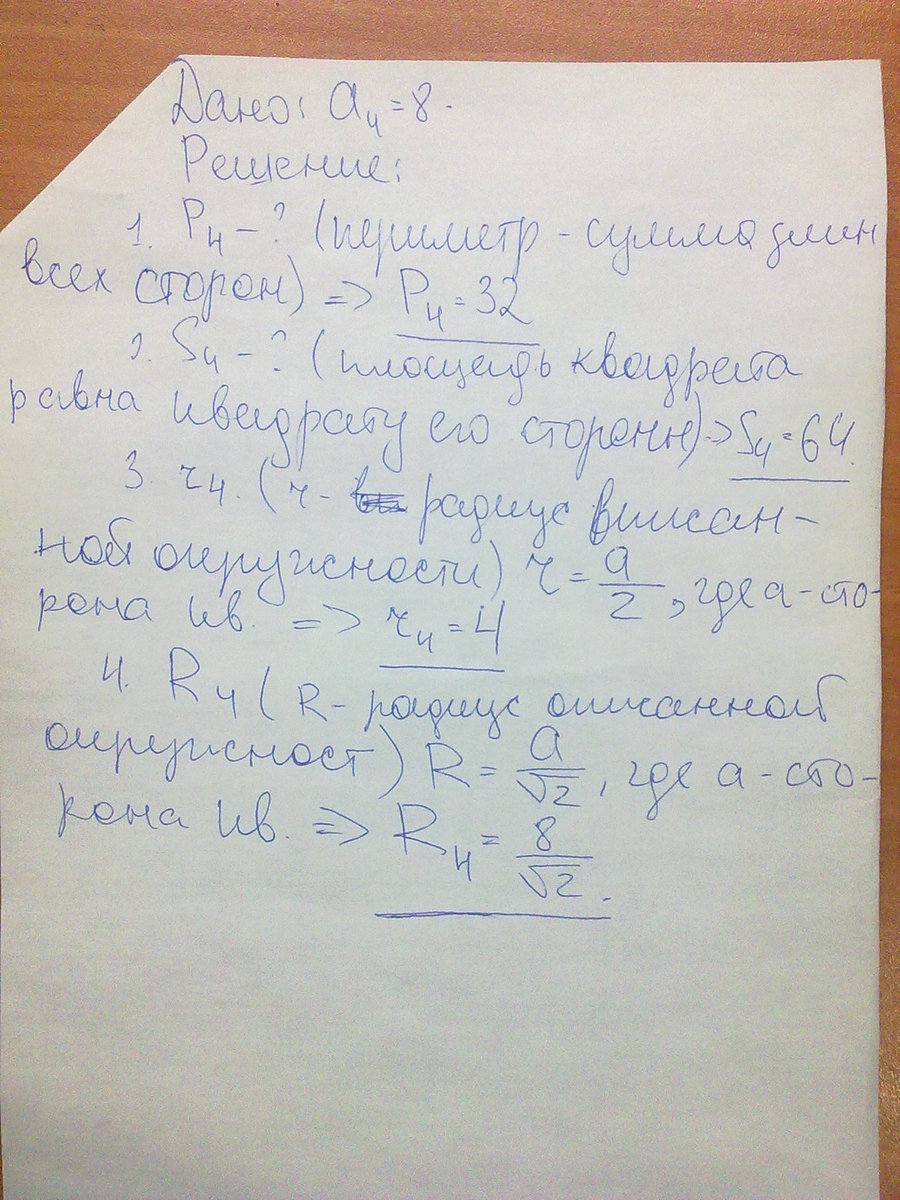 Дано: a₄ = 8.
Решение:
1. P₄ - ? (периметр - сумма длин
всех сторон) => P₄ = 32
2. S₄ - ? (площадь квадрата
равна квадрату его стороны) => S₄ = 64.
3. r₄. (r - радиус вписан-
ной окружности) r = a/2, где a - сто-
рона кв. => r₄ = 4
4. R₄ (R - радиус описанной
окружност) R = a/√2, где a - сто-
рона кв. => R₄ = 8/√2.